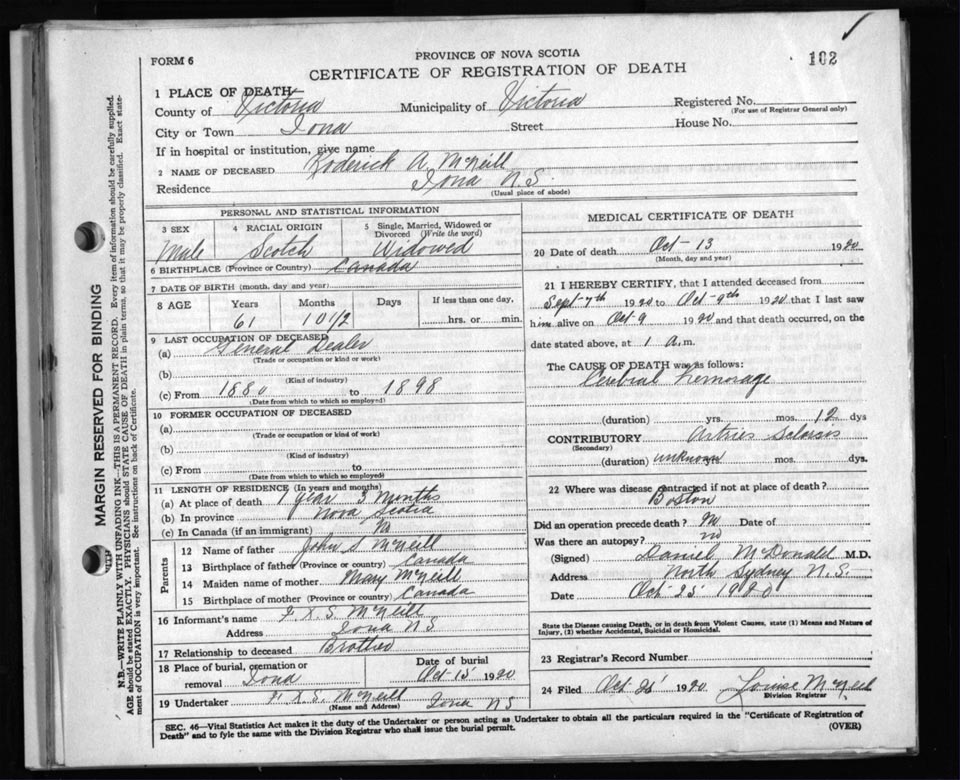 PROVINCE OF NOVA SCOTIA
FORM 6
CERTIFICATE OF REGISTRATION OF DEATH
102
1 PLACE OF DEATH
County of Victoria Municipality of Victoria Registered No.
(For use of Registrar General only)
City or Town Iona Street House No.
If in hospital or institution, give name
2 NAME OF DECEASED Roderick A. McNeill
Residence Iona N.S.
(Usual place of abode)
PERSONAL AND STATISTICAL INFORMATION
3 SEX 4 RACIAL ORIGIN 5 Single, Married, Widowed or Divorced (Write the word)
Male Scotch Widowed
6 BIRTHPLACE (Province or Country) Canada
7 DATE OF BIRTH (month, day and year)
8 AGE Years Months Days If less than one day,
61 10 1/2 hrs. or min.
9 LAST OCCUPATION OF DECEASED
(a) General Dealer
(Trade or occupation or kind of work)
(b)
(Kind of industry)
(c) From 1880 to 1898
(Date from which to which so employed)
10 FORMER OCCUPATION OF DECEASED
(a)
(Trade or occupation or kind of work)
(b)
(Kind of industry)
(c) From to
(Date from which to which so employed)
11 LENGTH OF RESIDENCE (In years and months)
(a) At place of death 1 year 3 months
(b) In province Nova Scotia
(c) In Canada (if an immigrant)
Parents
12 Name of father John S McNeill
13 Birthplace of father (Province or country) Canada
14 Maiden name of mother Mary McNeill
15 Birthplace of mother (Province or country) Canada
16 Informant's name X. S. McNeill
Address Iona N S
17 Relationship to deceased Brother
18 Place of burial, cremation or removal Iona
Date of burial Oct 15 1920
19 Undertaker X. S. McNeill Iona N S
(Name and Address)
MEDICAL CERTIFICATE OF DEATH
20 Date of death Oct - 13 1920
(Month, day and year)
21 I HEREBY CERTIFY, that I attended deceased from
Sept - 7th 1920 to Oct - 9th 1920 that I last saw
him alive on Oct - 9 1920 and that death occurred, on the
date stated above, at 1 a.m.
The CAUSE OF DEATH was as follows:
Cerebral Hemorage
(duration) yrs. mos. 12 dys
CONTRIBUTORY Artries Sclorsos
(Secondary)
(duration) unknown yrs. mos. dys.
22 Where was disease contracted if not at place of death?
Boston
Did an operation precede death? No Date of
Was there an autopsy? no
(Signed) Daniel McDonald M.D.
Address North Sydney N.S.
Date Oct 25 1920
State the Disease causing Death, or in death from Violent Causes, state (1) Means and Nature of
Injury, (2) whether Accidental, Suicidal or Homicidal.
23 Registrar's Record Number
24 Filed Oct 26 1920 Louise McNeil
Division Registrar
SEC. 46—Vital Statistics Act makes it the duty of the Undertaker or person acting as Undertaker to obtain all the particulars required in the "Certificate of Registration of
Death" and to fyle the same with the Division Registrar who shall issue the burial permit.
(OVER)
MARGIN RESERVED FOR BINDING
N.B.—WRITE PLAINLY WITH UNFADING INK—THIS IS A PERMANENT RECORD. Every item of information should be carefully supplied.
AGE should be stated EXACTLY. PHYSICIANS should STATE CAUSE OF DEATH in plain terms, so that it may be properly classified. Exact state-
ment of OCCUPATION is very important. See instructions on back of Certificate.